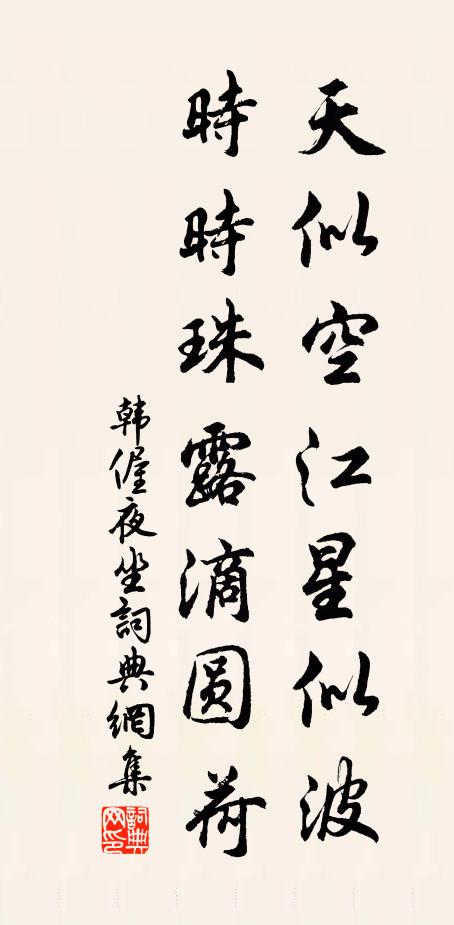 天似空江星似波
時時珠露滴圆荷
韩偓夜坐詞典網集
詞典网印